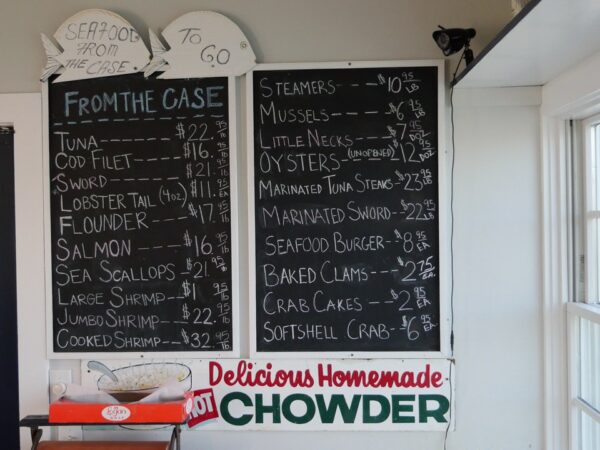 SEAFOOD
FROM
THE CASE
TO
GO
FROM THE CASE
TUNA $22.95 lb
COD FILET $16.95 lb
SWORD $21.95 lb
LOBSTER TAIL (4oz) $11.95 EA
FLOUNDER $17.95 lb
SALMON $16.95 lb
SEA SCALLOPS $21.95 lb
LARGE SHRIMP $1 .95 lb
JUMBO SHRIMP $22.95 lb
COOKED SHRIMP $32.95 lb
STEAMERS $10.95 LB
MUSSELS $6.95 LB
LITTLE NECKS $7.95 DOZ
OYSTERS (UNOPENED) $12.95 DOZ
MARINATED TUNA STEAKS $23.95 LB
MARINATED SWORD $22.95 LB
SEAFOOD BURGER $8.95 EA
BAKED CLAMS $2.75 EA.
CRAB CAKES $2.95 EA
SOFTSHELL CRAB $6.95 EA
Delicious Homemade
HOT CHOWDER